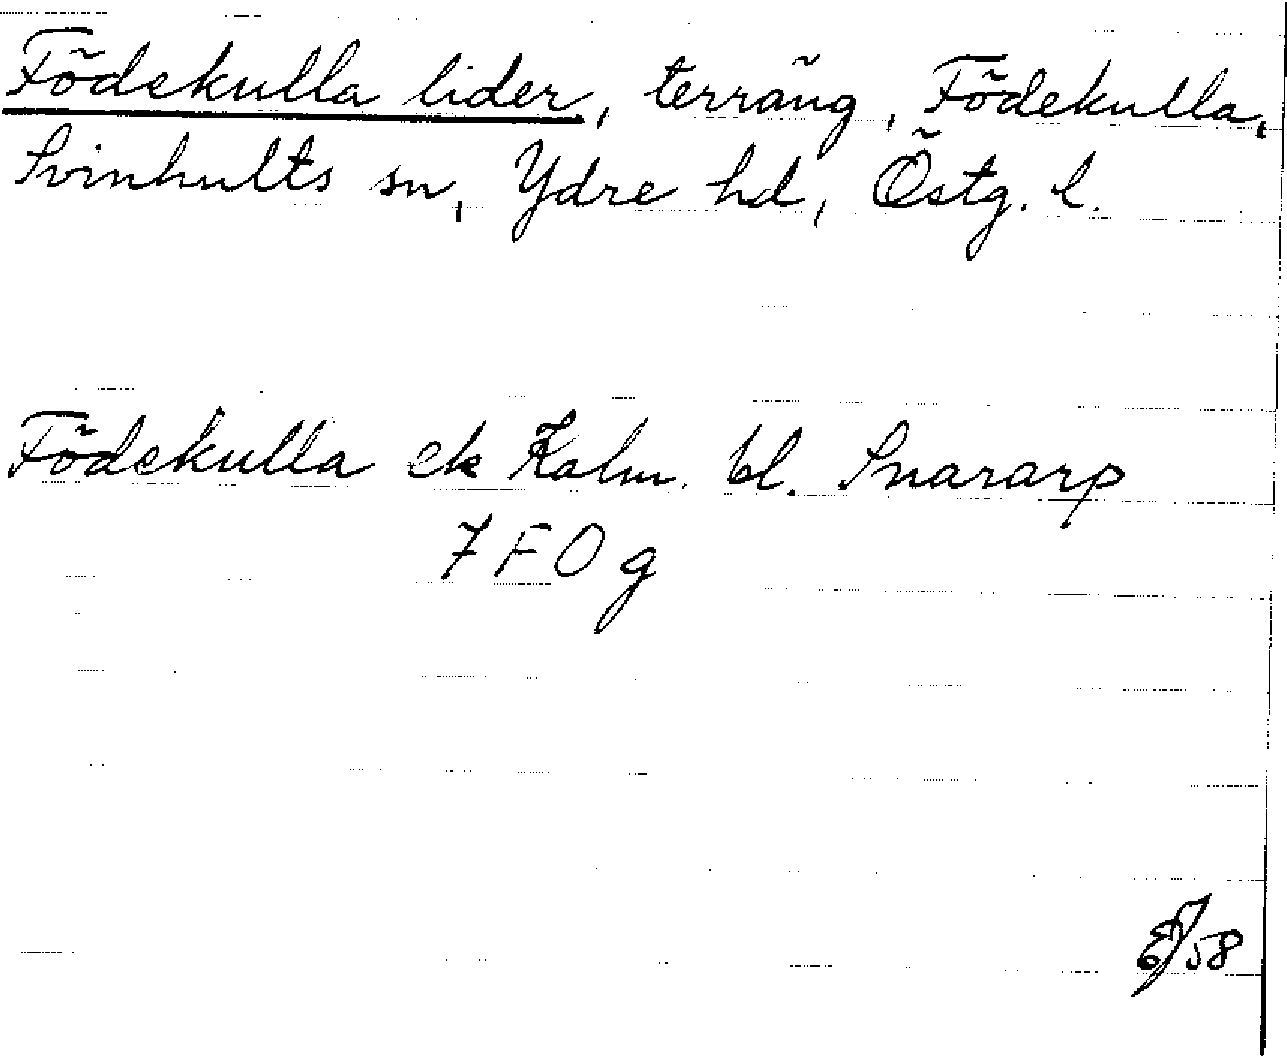 Födekulla lider, terräng, Födekulla,
Svinhults sn, Ydre hd, Östg. l.
Födekulla ek Kalm. bl. Snararp
7 F O g
EJ/58